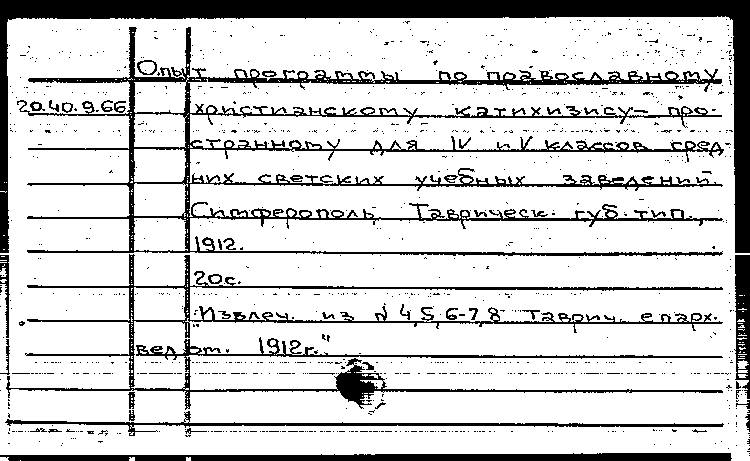 Опыт программы по православному
20.40.9.66 христианскому катихизису – про-
странному для IV и V классов сред-
них светских учебных заведений.
Симферополь, Таврическ. губ. тип.,
1912.
20с.
"Извлеч. из N 4,5,6-7,8 Таврич. епарх.
ведом. 1912г."